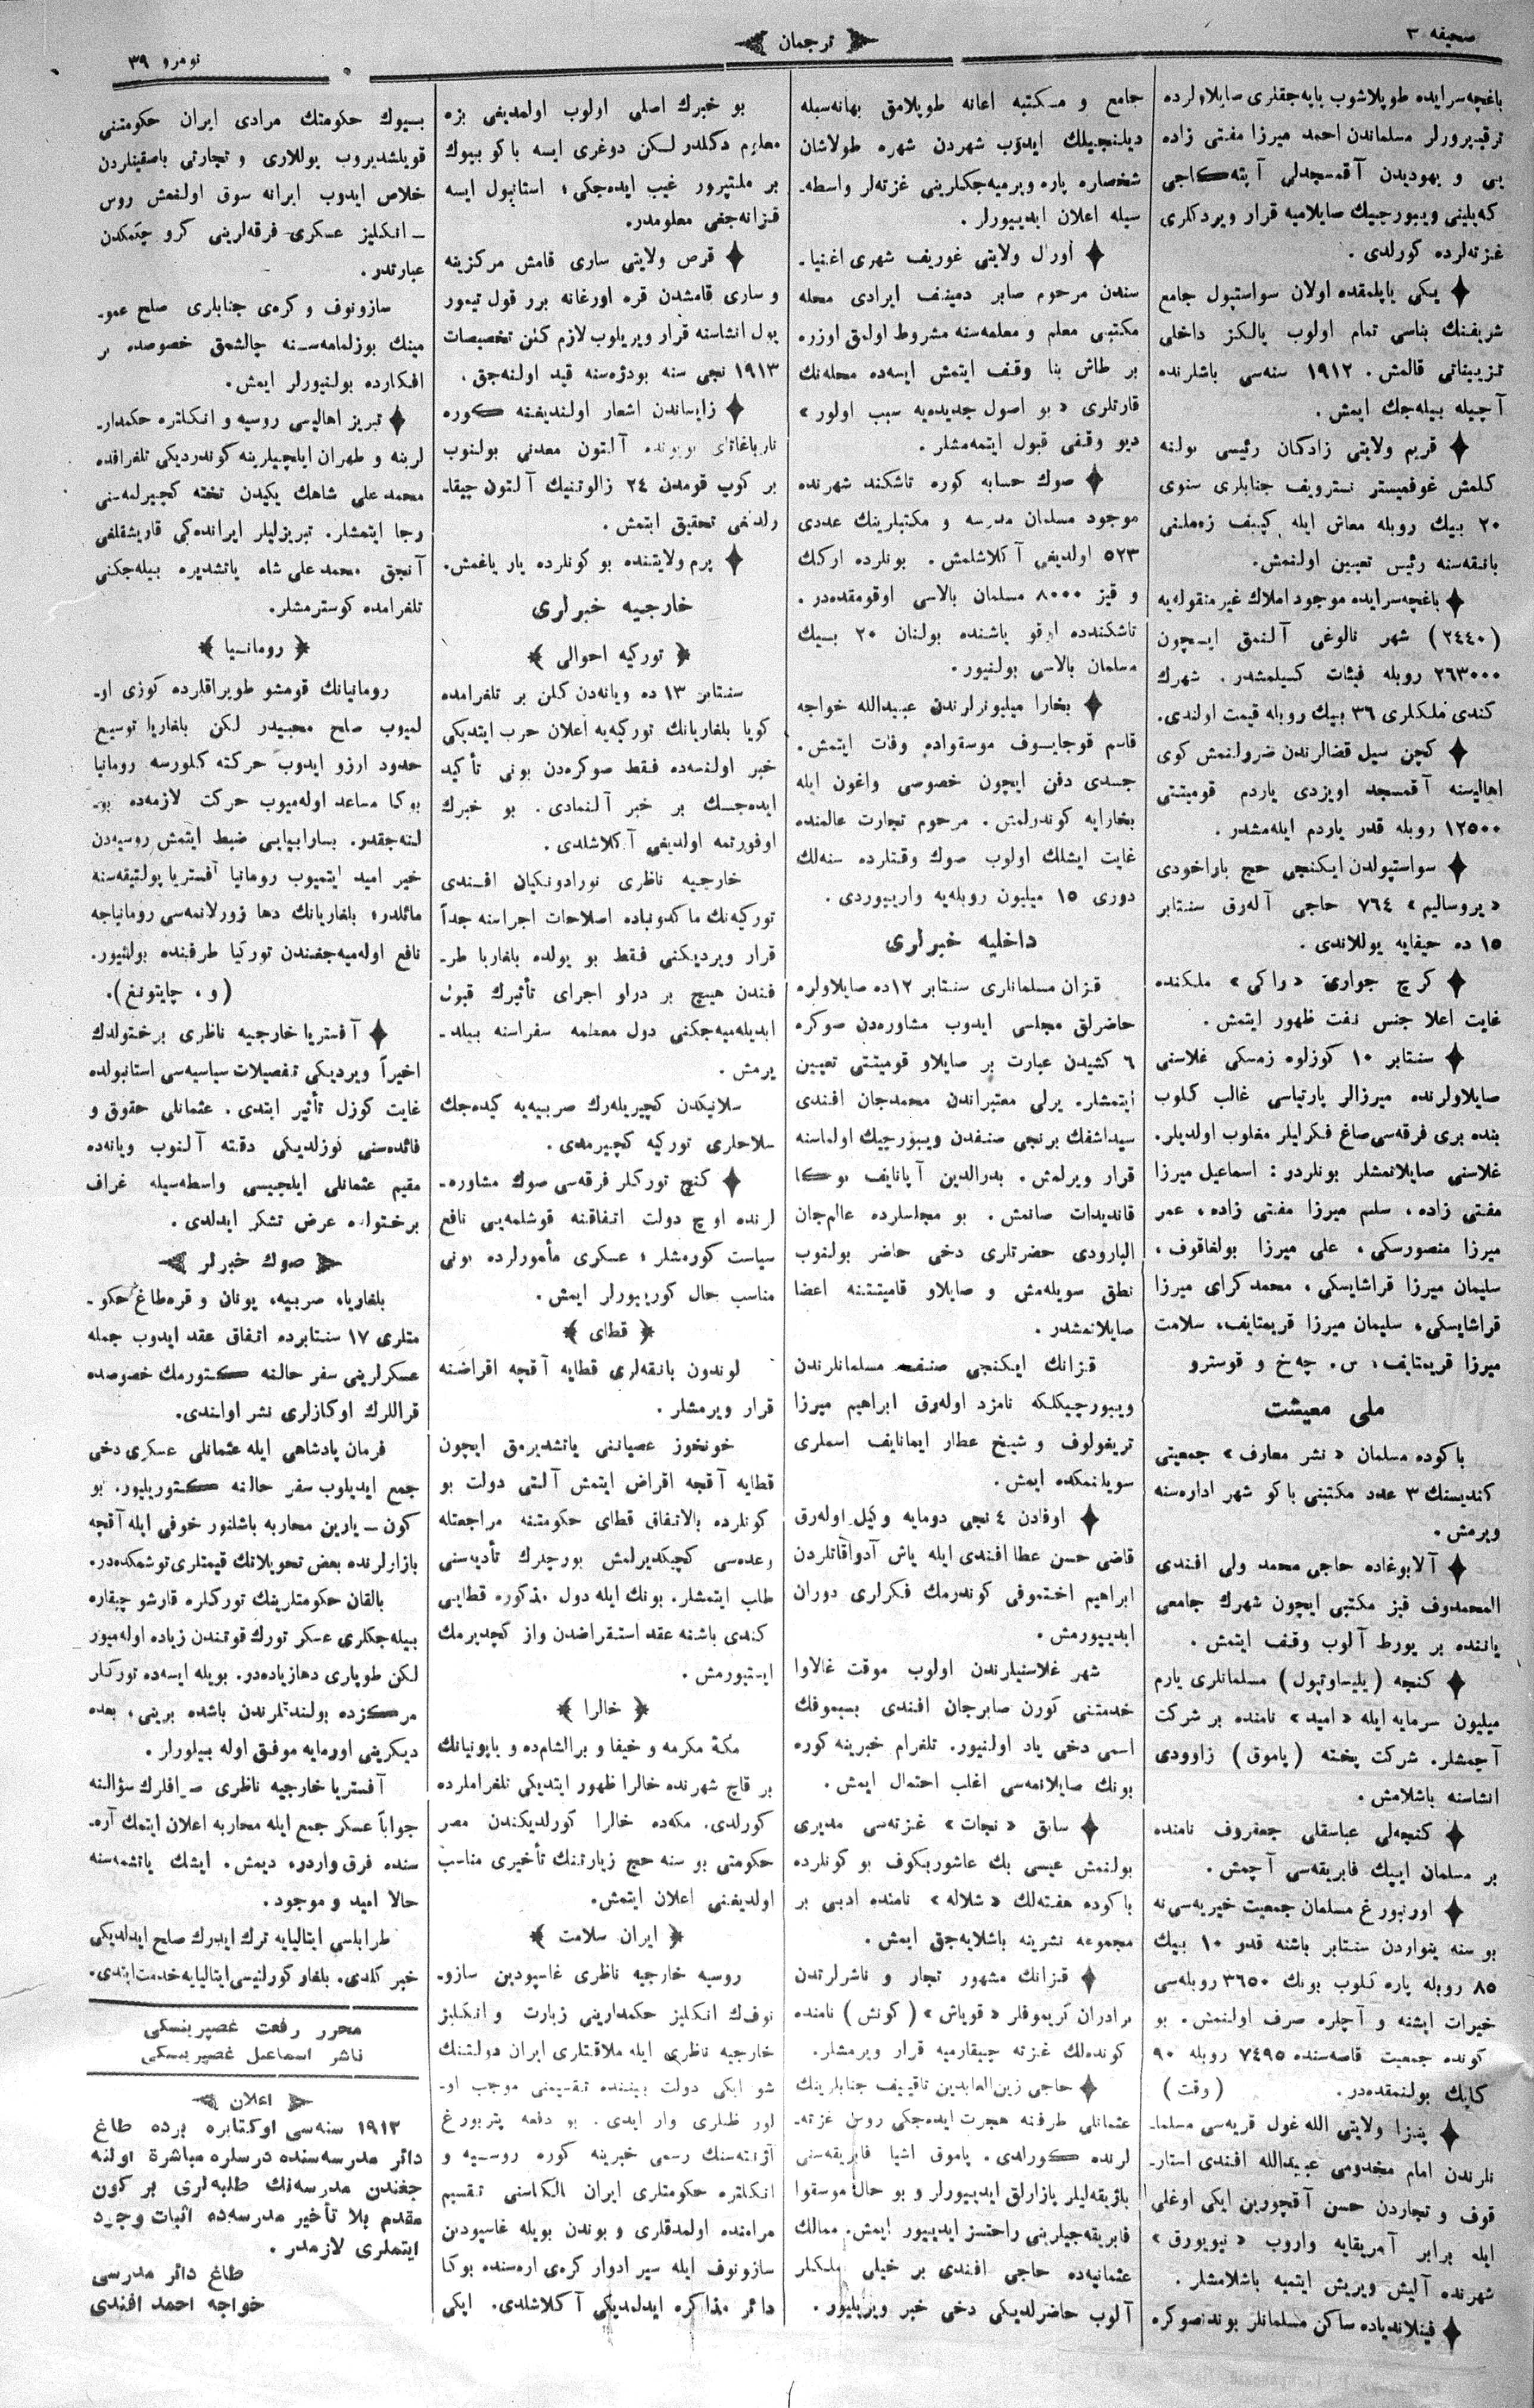 صحیفه ۳
ترجمان
نومرو ۳۹
باغچه‌سرایده طوپلاشوب یاپه‌جقلری صایلاولرده
ترقیپرورلر مسلماندن احمد میرزا مفتی زاده
یی و یهودیدن آقمسجدلی آپته‌کاجی
که‌یلینی ویبورجییك صایلامیه قرار ویردکلری
غزته‌لرده کورلدی .
یکی یاپلمقده اولان سواستپول جامع
شریفنك بناسی تمام اولوب یالکز داخلی
تزییناتی قالمش . ۱۹۱۲ سنه‌سی باشلرنده
آچیله بیله‌جك ایمش .
قریم ولایتی زادکان رئیسی بولنه
کلمش غوفمیستر نسترویف جنابلری سنوی
۲۰ بیك روبله معاش ایله کییف زمملنی
بانقه‌سنه رئیس تعیین اولنمش.
باغچه‌سرایده موجود املاك غیر منقوله‌یه
(۲٤٤۰) شهر نالوغی آلنمق ایچون
۲٦۳۰۰۰ روبله فیئات کسیلمشدر . شهرك
کندی ملکلری ۳٦ بیك روبله قیمت اولندی.
کچن سیل قضالرندن ضرولنمش کوی
اهالیسنه آقمسجد اویزدی یاردم قومیتتی
۱۲٥۰۰ روبله قدر یاردم ایله‌مشدر .
سواستپولدن ایکنجی حج باراخودی
«یروسالیم» ۷٦٤ حاجی آله‌رق سنتابر
۱٥ ده حیفایه یوللاندی .
کرچ جواری «راکی» ملکنده
غایت اعلا جنس نفت ظهور ایتمش .
سنتابر ۱۰ کوزلوه زمسکی غلاسنی
صایلاولرنده میرزالر پارتیاسی غالب کلوب
بنده بری فرقه‌سی صاغ فکرلیلر مغلوب اولدیلر.
غلاسنی صایلانمشلر بونلردر : اسماعیل میرزا
مفتی زاده ، سلیم میرزا مفتی زاده ، عمر
میرزا منصورسکی ، علی میرزا بولغاقوف ،
سلیمان میرزا قراشایسکی ، محمد کرای میرزا
قراشایسکی ، سلیمان میرزا قریمتایف ، سلامت
میرزا قریمتایف ، س . چه‌خ و قوسترو
ملی معیشت
باکوده مسلمان «نشر معارف» جمعیتی
کندیسنك ۳ عدد مکتبنی باکو شهر اداره‌سنه
ویرمش .
آلابوغاده حاجی محمد ولی افندی
المحمدوف قیز مکتبی ایچون شهرك جامعی
یاننده بر یورط آلوب وقف ایتمش .
کنجه (یلیساوتپول) مسلمانلری یارم
میلیون سرمایه ایله «امید» نامنده بر شرکت
آچمشلر. شرکت پخته (پاموق) زاوودی
انشاسنه باشلامش .
کنجه‌لی عباسقلی جعفروف نامنده
بر مسلمان ایپك فابریقه‌سی آچمش .
اورنبورغ مسلمان جمعیت خیریه‌سی نه
بو سنه ینواردن سنتابر باشنه قدر ۱۰ بیك
۸٥ روبله پاره کلوب بونك ۳٦٥۰ روبله‌سی
خیرات ایشنه و آچلره صرف اولنمش . بو
کونده جمعیت قاصه‌سنده ۷٤۹٥ روبله ۹۰
کاپك بولنمقده‌در .   (وقت)
پنزا ولایتی الله غول قریه‌سی مسلما-
نلرندن امام مخدومی عبیدالله افندی استار-
قوف و تجاردن حسن آقچورین ایکی اوغلی
ایله برابر آمریقایه واروب «نیویورق»
شهرنده آلیش ویریش ایتمیه باشلامشلر .
فینلاندیاده ساکن مسلمانلر بوندنصوکره
جامع و مکتبه اعانه طوپلامق بهانه‌سیله
دیلنجیلك ایدوب شهردن شهره طولاشان
شخصاره پاره ویرمیه‌جکلرینی غزته‌لر واسطه-
سیله اعلان ایدییورلر .
اورال ولایتی غوریف شهری اغنیا-
سندن مرحوم صابر دمینف ایرادی محله
مکتبی معلم و معلمه‌سنه مشروط اولمق اوزره
بر طاش بنا وقف ایتمش ایسه‌ده محله‌نك
قارتلری «بو اصول جدیده‌یه سبب اولور»
دیو وقفی قبول ایتمه‌مشلر .
صوك حسابه کوره تاشکند شهرنده
موجود مسلمان مدرسه و مکتبلرینك عددی
٥۲۳ اولدیغی آکلاشلمش . بونلرده ارکك
و قیز ۸۰۰۰ مسلمان بالاسی اوقومقده‌در .
تاشکندده اوقو یاشنده بولنان ۲۰ بیك
مسلمان بالاسی بولنیور .
بخارا میلیونرلرندن عبیدالله خواجه
قاسم قوجایوف موسقواده وفات ایتمش .
جسدی دفن ایچون خصوصی واغون ایله
بخارایه کوندرلمش . مرحوم تجارت عالمنده
غایت ایشلك اولوب صوك وقتلرده سنه‌لك
دوری ۱٥ میلیون روبله‌یه وارییوردی .
داخلیه خبرلری
قزان مسلمانلری سنتابر ۱۲ده صایلاولره
حاضرلق مجلسی ایدوب مشاوره‌دن صوکره
٦ کشیدن عبارت بر صایلاو قومیتتی تعیین
ایتمشلر. یرلی معتبراندن محمدجان افندی
سیداشفك برنجی صنفدن ویبورجیك اولماسنه
قرار ویرلمش . بدرالدین آپانایف بوکا
قاندیدات صانمش . بو مجلسلرده عالمجان
البارودی حضرتلری دخی حاضر بولنوب
نطق سویله‌مش و صایلاو قامیتتنه اعضا
صایلانمشدر .
قزانك ایکنجی صنف مسلمانلرندن
ویبورجیکلکه نامزد اوله‌رق ابراهیم میرزا
تریغولوف و شیخ عطار ایمانایف اسملری
سویلنمکده ایمش .
اوفادن ٤ نجی دومایه وکیل اوله‌رق
قاضی حسن عطا افندی ایله یاش آدواقاتلردن
ابراهیم اختموفی کوندرمك فکرلری دوران
ایدییورمش .
شهر غلاسنیلرندن اولوب موقت غالاوا
خدمتنی کورن صابرجان افندی
اسمی دخی یاد اولنیور. تلغرام خبرینه کوره
بونك صایلانمه‌سی اغلب احتمال ایمش .
سابق «نجات» غزته‌سی مدیری
بولنمش عیسی بك عاشوربکوف بو کونلرده
باکوده هفته‌لك «شلاله» نامنده ادبی بر
مجموعه نشرینه باشلایه‌جق ایمش .
قزانك مشهور تجار و ناشرلرندن
برادران کریموفلر «قویاش» (کونش) نامنده
کونده‌لك غزته چیقارمیه قرار ویرمشلر .
حاجی زین‌العابدین تاقییف جنابلرینك
عثمانلی طرفنه هجرت ایده‌جکی روس غزته-
لرنده کورلدی . پاموق اشیا فابریقه‌سنی
بلژیقه‌لیلر پازارلق ایدییورلر و بو حال موسقوا
فابریقه‌جیلرینی راحتسز ایدییور ایمش. ممالك
عثمانیه‌ده حاجی افندی بر خیلی ملکلر
آلوب حاضرلدیکی دخی خبر ویریلیور .
بو خبرك اصلی اولوب اولمدیغی بزه
معلوم دکلدر لکن دوغری ایسه باکو بیوك
بر ملتپرور غیب ایده‌جکی ؛ استانبول ایسه
قزانه‌جغی معلومدر.
قرص ولایتی ساری قامش مرکزینه
و ساری قامشدن قره اورغانه برر قول تیمور
یول انشاسنه قرار ویریلوب لازم کلن تخصیصات
۱۹۱۳ نجی سنه بودژه‌سنه قید اولنه‌جق .
زایساندن اشعار اولندیغنه کوره
تارباغاتای بویونده آلتون معدنی بولنوب
بر کوپ قومدن ۲٤ زالوتنیك آلتون چیقا-
رلدغی تحقیق ایتمش .
پرم ولایتنده بو کونلرده یار یاغمش.
خارجیه خبرلری
تورکیه احوالی
سنتابر ۱۳ ده ویانه‌دن کلن بر تلغرامده
کویا بلغاریانك تورکیه‌یه اعلان حرب ایتدیکی
خبر اولنسه‌ده فقط صوکره‌دن بونی تأکید
ایده‌جك بر خبر آلنمادی . بو خبرك
اوفورتمه اولدیغی آکلاشلدی .
خارجیه ناظری نورادونکیان افندی
تورکیه‌نك ماکدونیاده اصلاحات اجراسنه جداً
قرار ویردیکنی فقط بو یولده بلغاریا طر-
فندن هیچ بر درلو اجرای تأثیرك قبول
ایدیله‌میه‌جکنی دول معظمه سفراسنه بیلد-
یرمش .
سلانیکدن کچیریله‌رك صربیه‌یه کیده‌جك
سلاحلری تورکیه کچیرمدی .
کنج تورکلر فرقه‌سی صوك مشاوره-
لرنده اوچ دولت اتفاقنه قوشلمه‌یی نافع
سیاست کوره‌مشلر ؛ عسکری مأمورلرده بونی
مناسب حال کورییورلر ایمش .
قطای
لوندون بانقه‌لری قطایه آقچه اقراضنه
قرار ویرمشلر .
خونخوز عصیاننی یاتشدیرمق ایچون
قطایه آقچه اقراض ایتمش آلتی دولت بو
کونلرده بالاتفاق قطای حکومتنه مراجعتله
وعده‌سی کچیکدیرلمش بورجلرك تأدیه‌سنی
طلب ایتمشلر. بونك ایله دول مذکوره قطایی
کندی باشنه عقد استقراضدن واز کچدیرمك
ایستیورمش .
خالرا
مکهٔ مکرمه و حیفا و برالشام‌ده و یاپونیانك
بر قاچ شهرنده خالرا ظهور ایتدیکی تلغرامله‌رده
کورلدی. مکه‌ده خالرا کورلدیکندن مصر
حکومتی بو سنه حج زیارتنك تأخیری مناسب
اولدیغنی اعلان ایتمش.
ایران سلامت
روسیه خارجیه ناظری غاسپودین سازو-
نوف‌ك انکلیز حکمدارینی زیارت و انکلیز
خارجیه ناظری ایله ملاقتلری ایران دولتنك
شو ایکی دولت بیننده تقسیمنی موجب او-
لور ظنلری وار ایدی . بو دفعه پتربورغ
آژانته‌سنك رسمی خبرینه کوره روسیه و
انکلتره حکومتلری ایران الکاسنی تقسیم
مرامنده اولمدقلری و بوندن بویله غاسپودین
سازونوف ایله سیر ادوار کره‌ی اره‌سنده بوکا
دائر مذاکره ایدلمدیکی آکلاشلدی. ایکی
بیوك حکومتك مرادی ایران حکومتنی
قویلشدیروب یوللاری و تجارتی باصقینلردن
خلاص ایدوب ایرانه سوق اولنمش روس
– انکلیز عسکری فرقه‌لرینی کرو چکمکدن
عبارتدر .
سازونوف و کره‌ی جنابلری صلح عمو-
مینك بوزلمامه‌سنه چالشمق خصوصده بر
افکارده بولنیورلر ایمش.
تبریز اهالیسی روسیه و انکلتره حکمدار-
لرینه و طهران ایلچیلرینه کوندردیکی تلغرافده
محمد علی شاهك یکیدن تخته کچیرلمه‌سنی
رجا ایتمشلر. تبریزلیلر ایرانده‌کی قاریشقلغی
آنجق محمد علی شاه یاتشدیره بیله‌جکنی
تلغرامده کوسترمشلر.
رومانیا
رومانیانك قومشو طوپراقلرده کوزی او-
لمیوب صلح محبیدر لکن بلغاریا توسیع
حدود ارزو ایدوب حرکته کلورسه رومانیا
بوکا مساعد اوله‌میوب حرکت لازمه‌ده بو-
لنه‌جقدر. بسارابیایی ضبط ایتمش روسیه‌دن
خیر امید ایتمیوب رومانیا آفستریا پولتیقه‌سنه
مائلدر؛ بلغاریانك دها زورلانمه‌سی رومانیاجه
نافع اوله‌میه‌جغندن تورکیا طرفنده بولنیور.
(و . چایتونغ).
آفستریا خارجیه ناظری برختولدك
اخیراً ویردیکی تفصیلات سیاسیه‌سی استانبولده
غایت کوزل تأثیر ایتدی. عثمانلی حقوق و
فائده‌سنی کوزلدیکی دقته آلنوب ویانه‌ده
مقیم عثمانلی ایلچیسی واسطه‌سیله غراف
برختولده عرض تشکر ایدلدی .
صوك خبرلر
بلغاریا، صربیه، یونان و قره‌طاغ حکو-
متلری ۱۷ سنتابرده اتفاق عقد ایدوب جمله
عسکرلرینی سفر حالنه کتورمك خصوصده
قراللرك اوکازلری نشر اولندی.
فرمان پادشاهی ایله عثمانلی عسکری دخی
جمع ایدیلوب سفر حالنه کتوریلیور. بو
کون – یارین محاربه باشلنور خوفی ایله آقچه
بازارلرنده بعض تحویلاتك قیمتلری توشمکده‌در.
بالقان حکومتلرینك تورکلره قارشو چیقاره
بیله‌جکلری عسکر تورك قوتندن زیاده اوله‌میور
لکن طوپلری دها زیاده‌در. بویله ایسه‌ده تورکلر
مرکزده بولندقلرندن باشده برینی، بعده
دیکرینی اورمایه موفق اوله بیلورلر .
آفستریا خارجیه ناظری صرافلرك سؤالنه
جواباً عسکر جمع ایله محاربه اعلان ایتمك آره-
سنده فرق واردر، دیمش. ایشك یاتشمه‌سنه
حالا امید و موجود .
طرابلسی ایتالیایه ترك ایدرك صلح ایدلدیکی
خبر کلدی. بلغار کورلتیسی ایتالیایه خدمت ایتدی.
محرر رفعت غصپرینسکی
ناشر اسماعیل غصپرینسکی
اعلان
۱۹۱۲ سنه‌سی اوکتابره برده طاغ
دائر مدرسه‌سنده درسلره مباشرة اولنه
جغندن مدرسه‌نك طلبه‌لری بر کون
مقدم بلا تأخیر مدرسه‌ده اثبات وجود
ایتملری لازمدر .
طاغ دائر مدرسی
خواجه احمد افندی